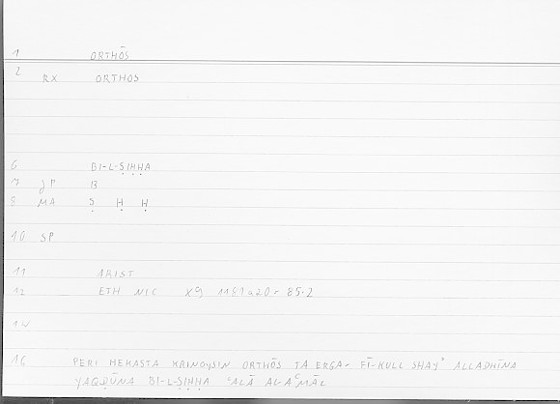 1 ORTHŌS
2 RX ORTHOS
6 BI-L-ṢIḤḤA
7 JP B
8 MA Ṣ Ḥ Ḥ
10 SP
11 ARIST
12 ETH NIC X9 1181a20
14
16 PERI HEKASTA ORTHŌS TA ERGA FĪ-KULL SHAYʾ ALLADHĪNA
BI-L-ṢIḤḤA ʿALĀ